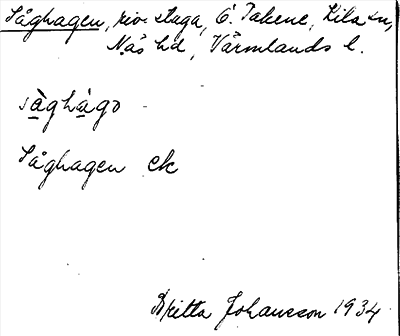 Såghagen, riv. stuga, Ö. Takene, Kila sn,
Näs hd, Värmlands l.
sàghàgɔ
Såghagen ek
Britta Johansson 1934